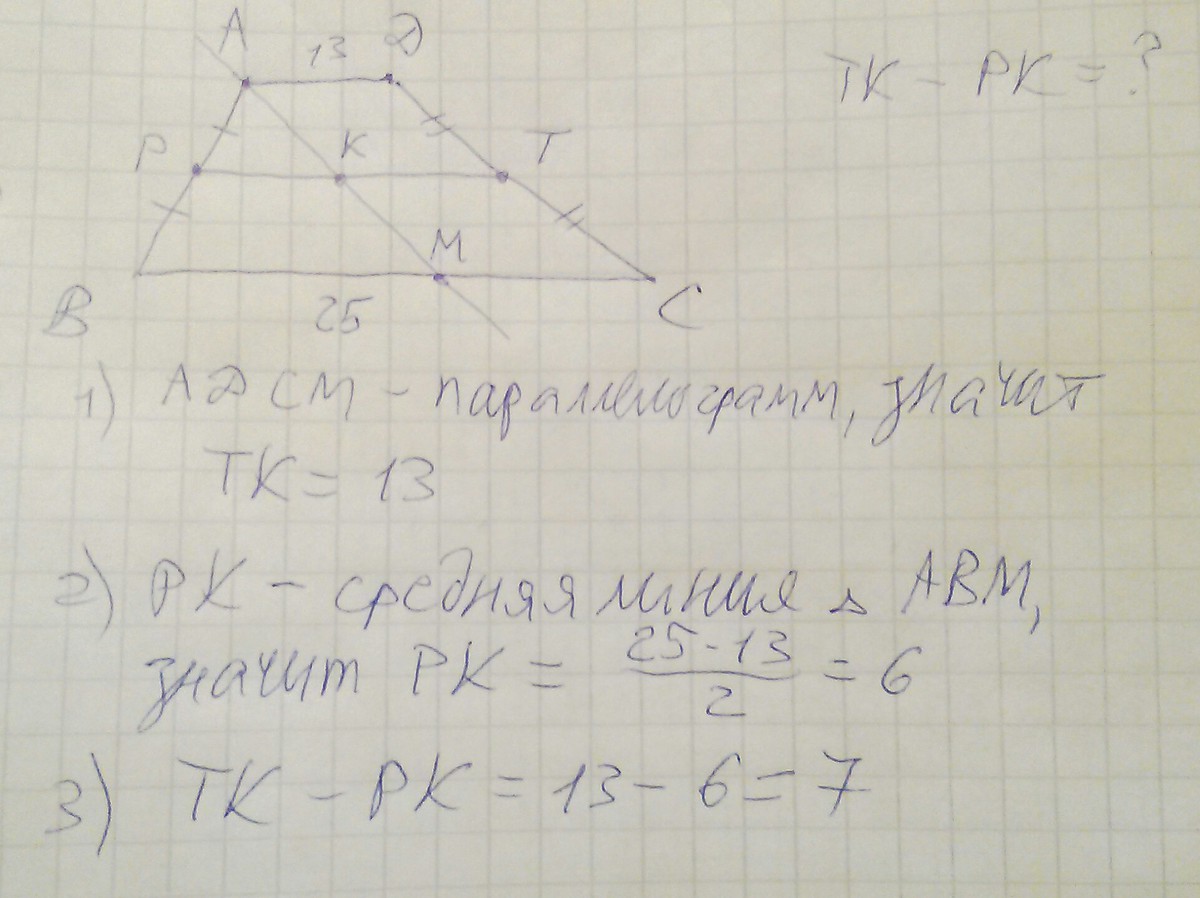 А 13 D
TK - PK = ?
P K T
M
B 25 C
1) ADCM - параллелограмм, значит
TK = 13
2) PK - средняя линия △ ABM,
значит PK = (25-13)/2 = 6
3) TK - PK = 13 - 6 = 7